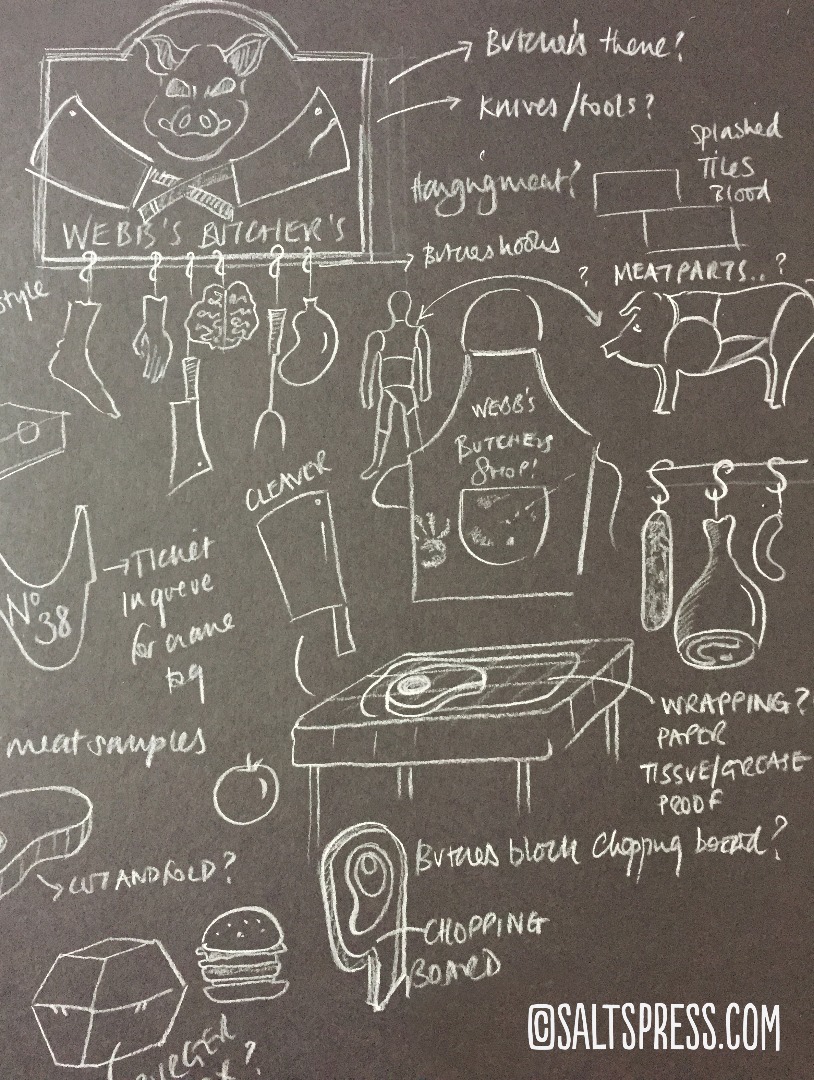 Butcher's theme?
Knives/tools?
Splashed
Tiles
Blood
Hanging meat?
WEBB'S BUTCHER'S
Butchers hooks
style
? MEAT PARTS..?
WEBB'S
BUTCHERS
SHOP!
CLEAVER
Ticket
in queue
for
Nº
38
WRAPPING?
PAPER
TISSUE/GREASE
PROOF
meat samples
Butchers block chopping board?
CUT AND FOLD?
CHOPPING
BOARD
BURGER
©SALTSPRESS.COM